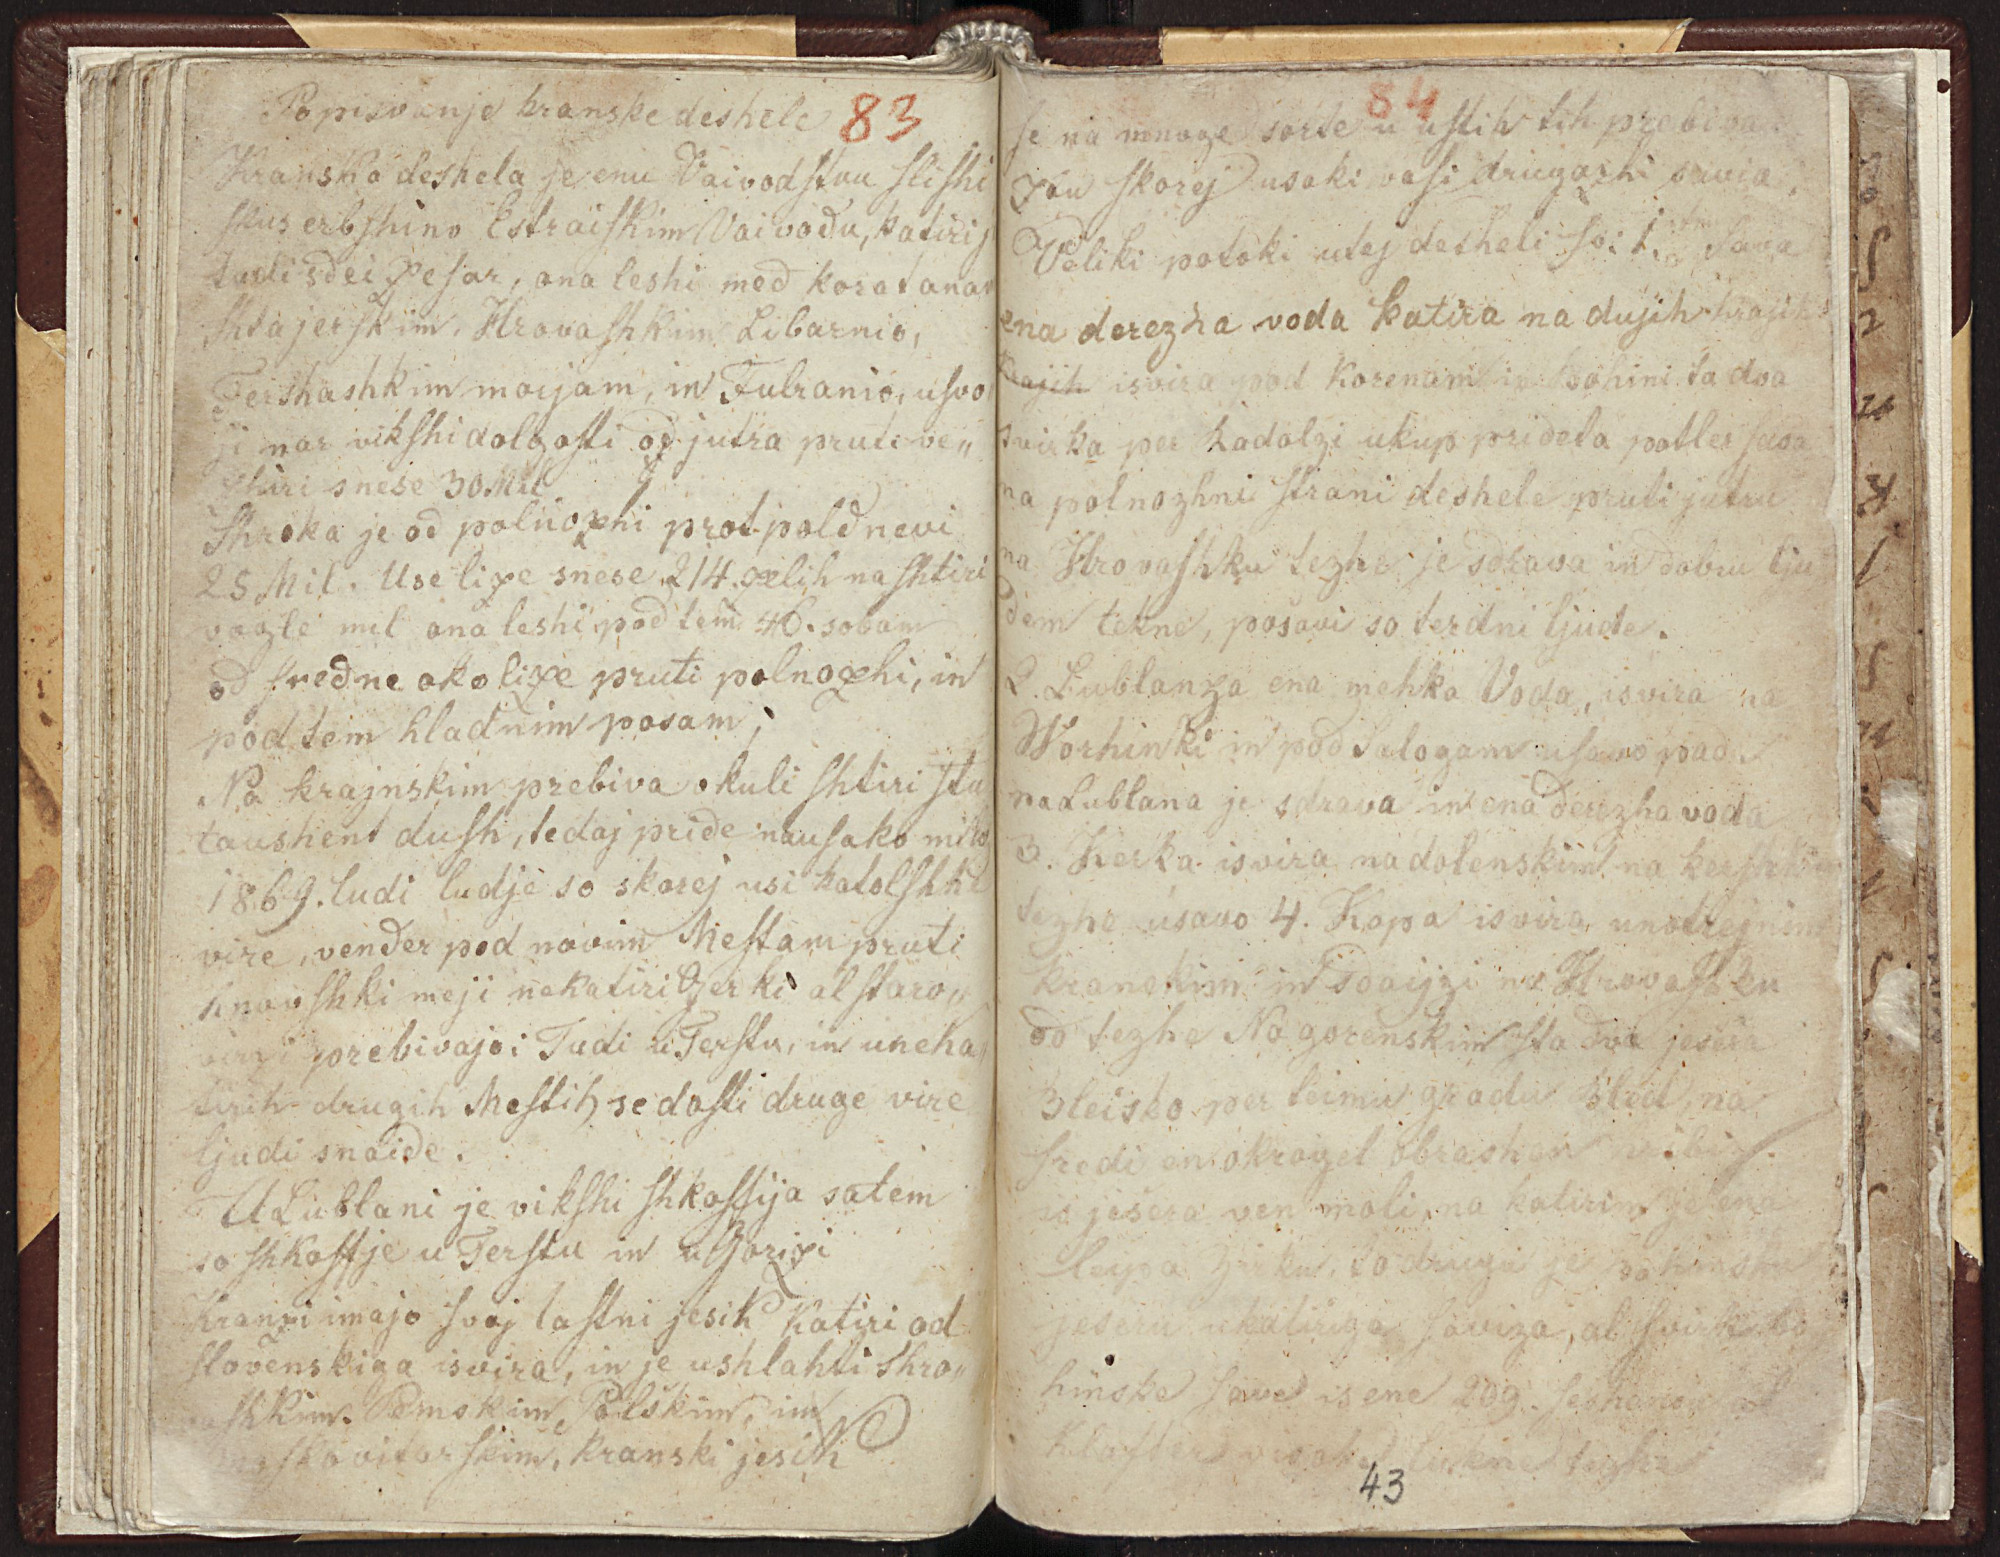 Popisvanje kranske deshele 83
Kranska deshela je enu Vaivodstvu slishi
skus erbshino Estraiskim Vaivodu, katiri j
tudi sdei Zesar, ona leshi med koratanam
Shtajerskim, Hrovashkim Libarnio,
Tershashkim morjam, in Fulranio, usvo
ji nar vikshi dolgosti od jutra pruti ve„
zhiri snese 30 Mil
Shroka je od polnozhi prot poldnevi
25 Mil. Use lize snese 214. zelih na shtiri
vogle mil ona leshi pod tem 46. sobam
od sredne okolize pruti polnozhi, in
pod tem hladnim posam,
Na krajnskim prebiva okuli shtiri stu
taushent dush, tedaj pride nausako milo
1869. ludi ludje so skorej usi katolshke
vire, vender pod novim Mestam pruti
hrovshki meji nekatiri Gerki al staro„
virzi prebivajo: Tudi u Terstu, in uneka„
tirih drugih Mestih se dosti druge vire
ljudi snaide.
U Lublani je vikshi shkoffija satem
so shkoffje u Terstu in u Gorizi
Kranzi imajo svoj lastni jesik katiri od
slovenskiga isvira, in je ushlahti s hro„
vashkim. Pemskim Polskim, in
moskovitarskim, kranski jesik
84
se na mnoge sorte u ustih tih prebiva„
zou skorej usaki vasi drugazhi savia.
Veliki potoki utej desheli so: 1. Sava
ena derezha voda katira na dujih krajih
krajih isvira pod Korenam in Bohini ta dva
svirka per Radolzi ukup prideta potler sava
na polnozhni strani deshele pruti jutru
na Hrovashku tezhe je sdrava in dobru lju
dem tekne, posavi so terdni ljude.
2. Lublanza ena mehka Voda, isvira na
Worhinki in pod Salogam usavo pade
na Lublana je sdrava in ena derezha voda
3. Kerka isvira nadolenskim na kershkim
tezhe usavo 4. Kopa isvira unotrejnim
kranskim in na Hrovashku
od tezhe Na gorenskim sta dva jesera
Bleisko per teimu gradu Bled, na
sredi en okrogel obrashen hribiz.
is jesera ven moli, na katirim je ena
leipa zirku, to drugu je bohinsku
jeseru ukatiriga saviza, al svirk bo
hinske save is ene 209. seshnou al
klafter visoke lukne tezhe
43